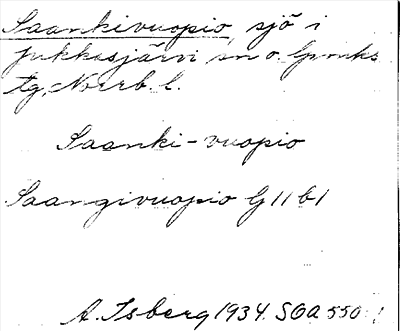 Saankivuopio, sjö i
Jukkasjärvi sn o. Gvnks
tg, Norrb. l.
Saanki-vuopio
Saangivuopio G 11 b1
A. Isberg 1934. SOA 550